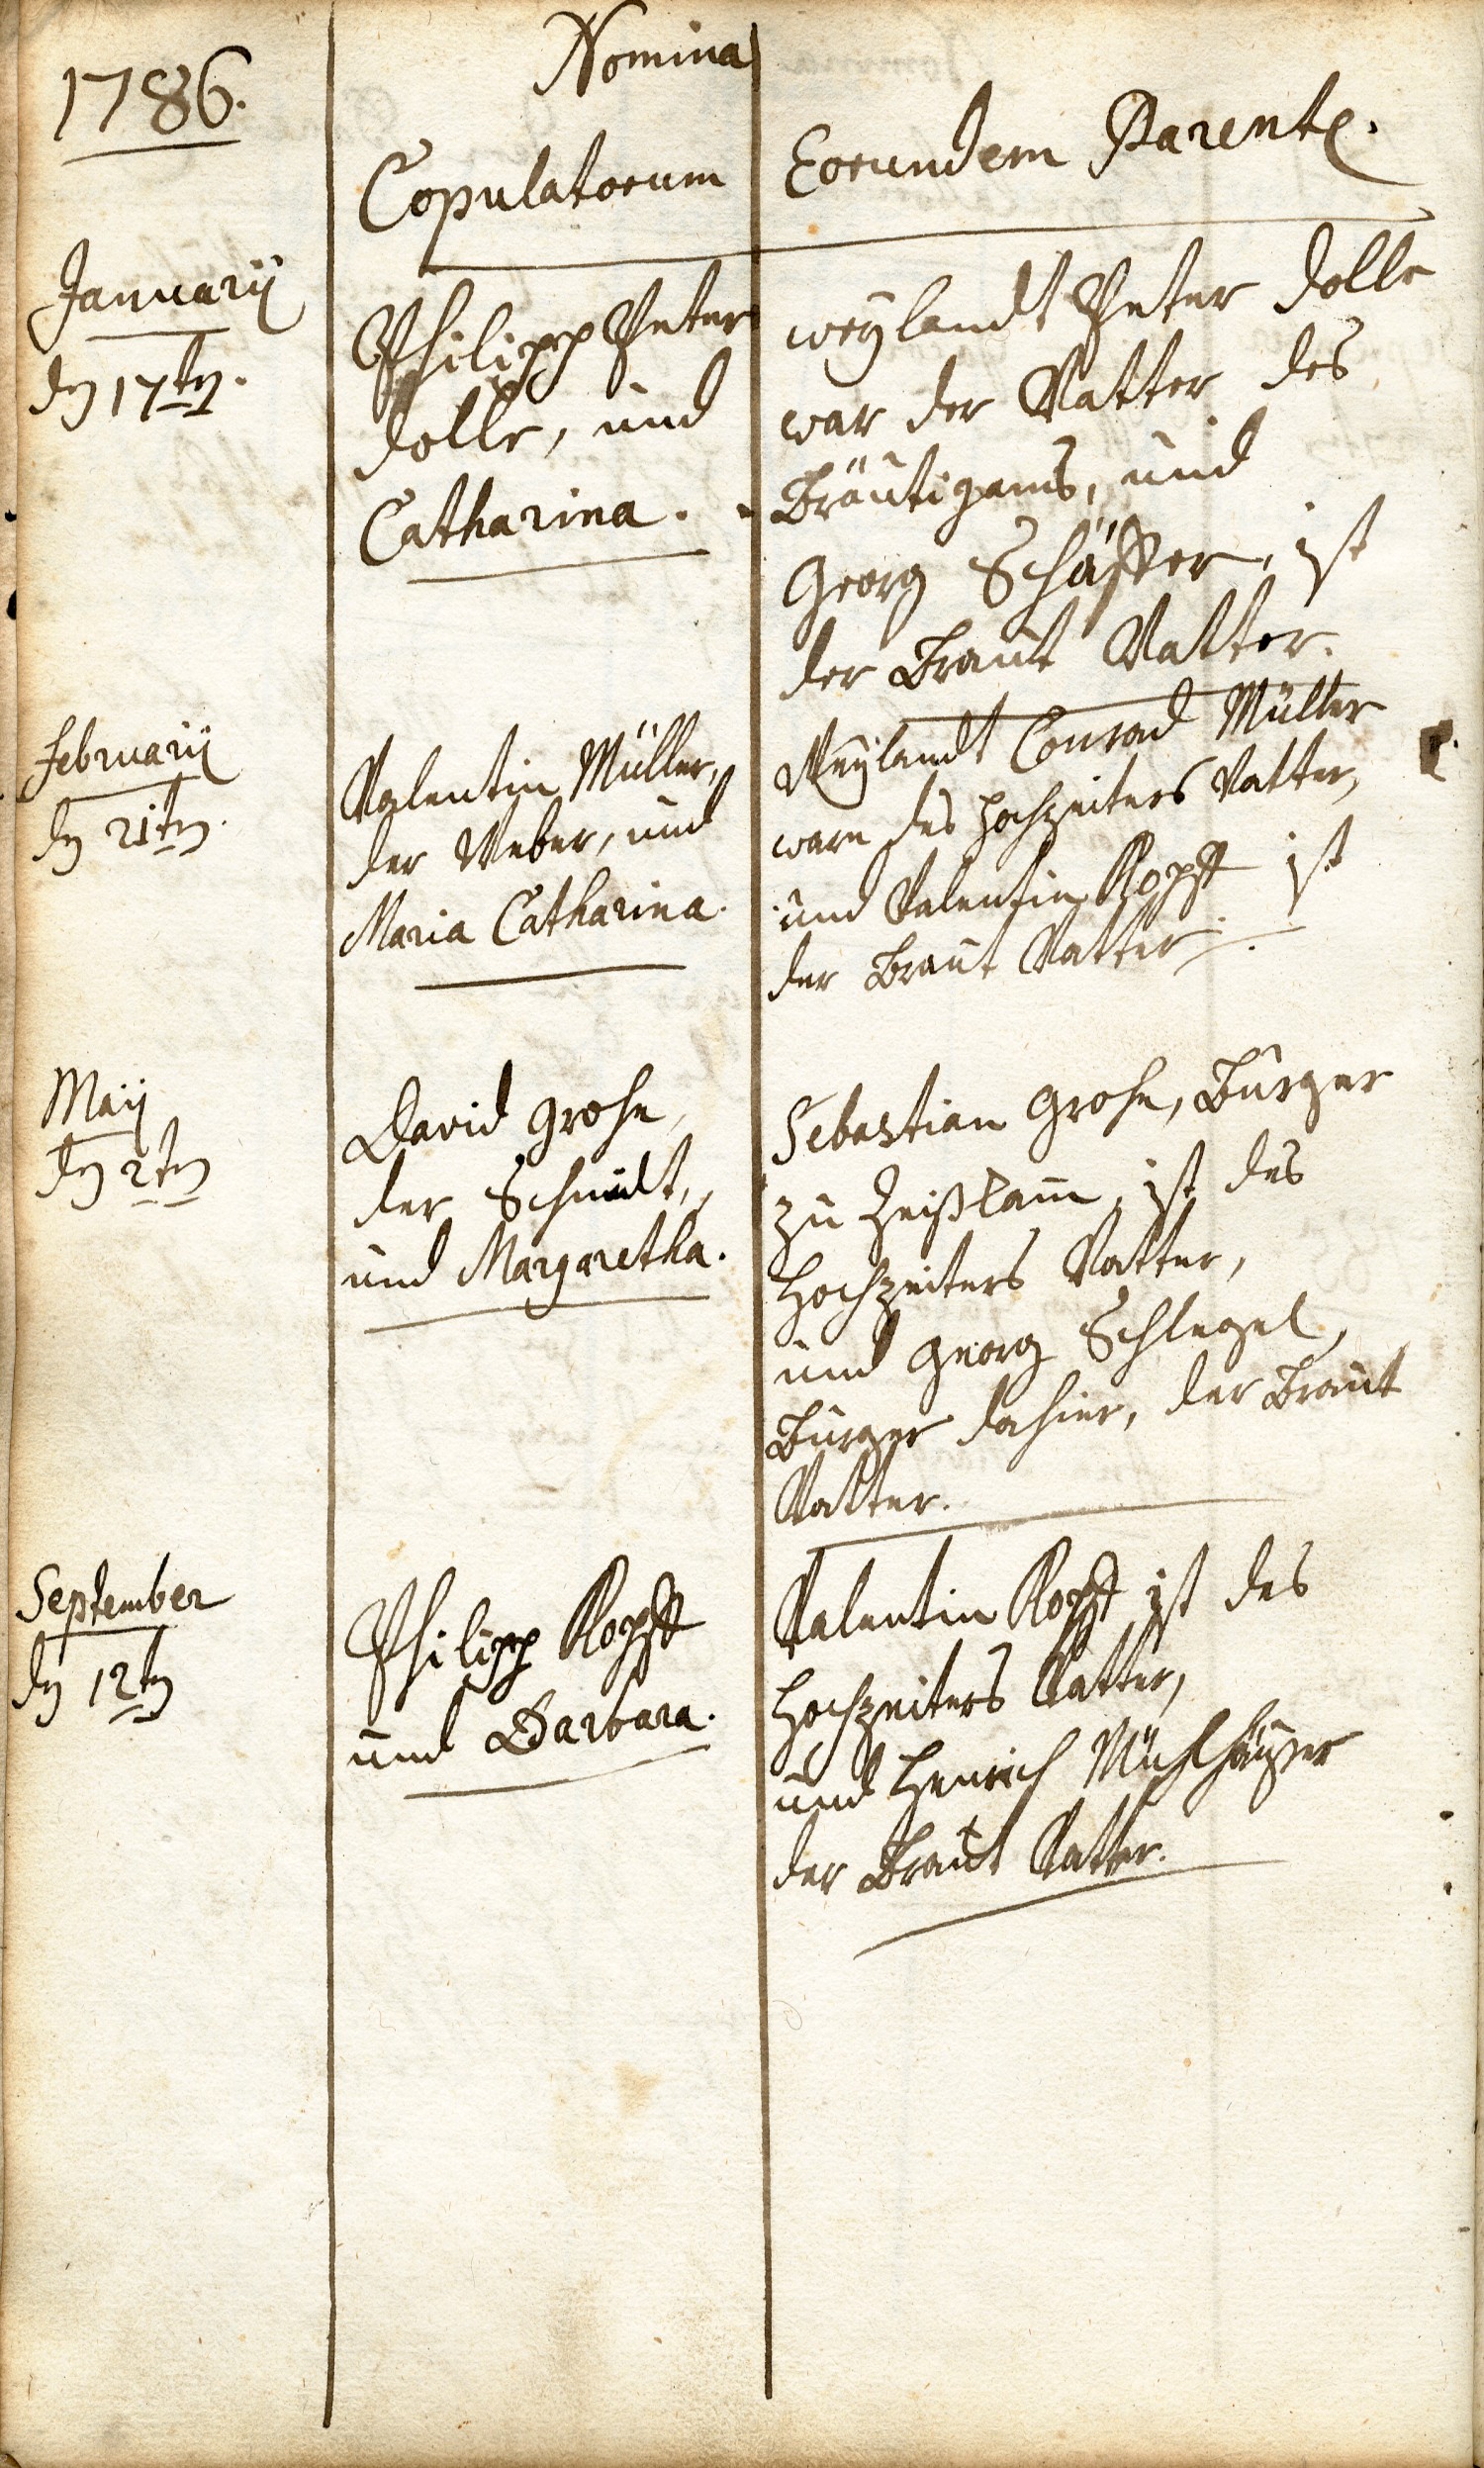 1786.
Nomina
Copulatorum
Eorundem Parentes.
Januarii
den 17ten.
Philipp Peter
Dolle, und
Catharina.
weylandt Peter Dolle
war der Vatter des
Bräutigams, und
Georg Schäffer, ist
der Braut Vatter.
Februarii
den 21ten.
Valentin Müller,
der Weber, und
Maria Catharina.
Weylandt Conrad Müller
ware des Hochzeiters Vatter,
und Valentin Kopff ist
der Braut Vatter.
Maii
den 2ten
David Grohe,
der Schmidt,
und Margaretha.
Sebastian Grohe, Burger
zu Zeißkam, ist des
Hochzeiters Vatter,
und Georg Schlegel,
Burger dahier, der Braut
Vatter.
September
den 12ten
Philipp Kopff
und Barbara.
Valentin Kopff ist des
Hochzeiters Vatter,
und Henrich Mühlhäußer
der Braut Vatter.